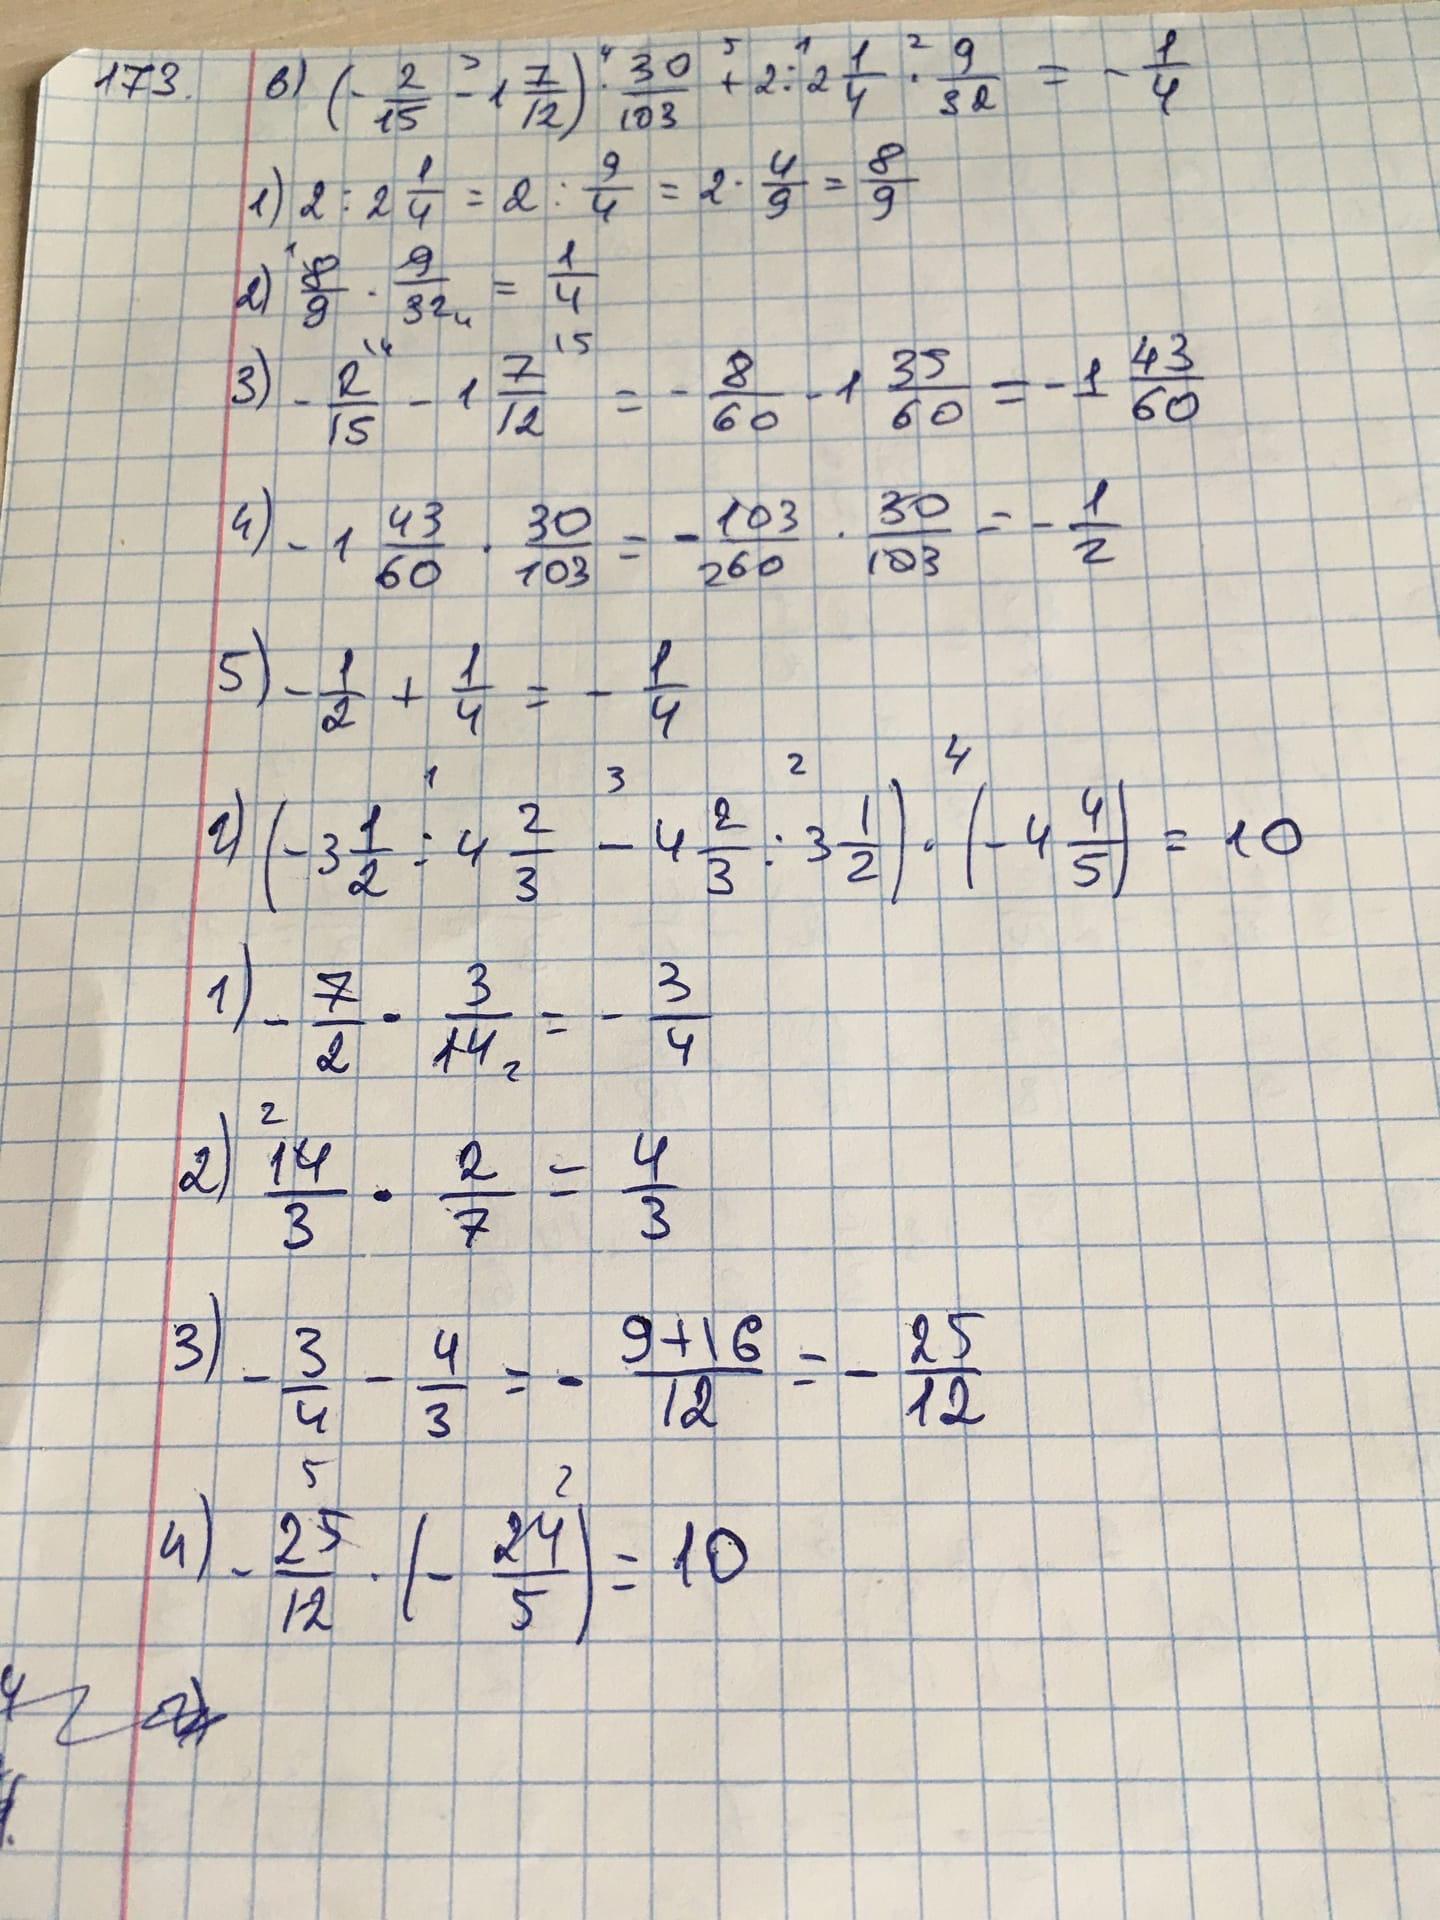 173. в) (- 2/15 - 1 7/12) · 30/103 + 2 : 2 1/4 · 9/32 = - 1/4
1) 2 : 2 1/4 = 2 : 9/4 = 2 · 4/9 = 8/9
2) 8/9 · 9/32 = 1/4
3) - 2/15 - 1 7/12 = - 8/60 - 1 35/60 = - 1 43/60
4) - 1 43/60 · 30/103 = - 103/60 · 30/103 = - 1/2
5) - 1/2 + 1/4 = - 1/4
г) (- 3 1/2 : 4 2/3 - 4 2/3 : 3 1/2) · (- 4 4/5) = 10
1) - 7/2 · 3/14 = - 3/4
2) 14/3 · 2/7 = 4/3
3) - 3/4 - 4/3 = - 9+16/12 = - 25/12
4) - 25/12 · (- 24/5) = 10